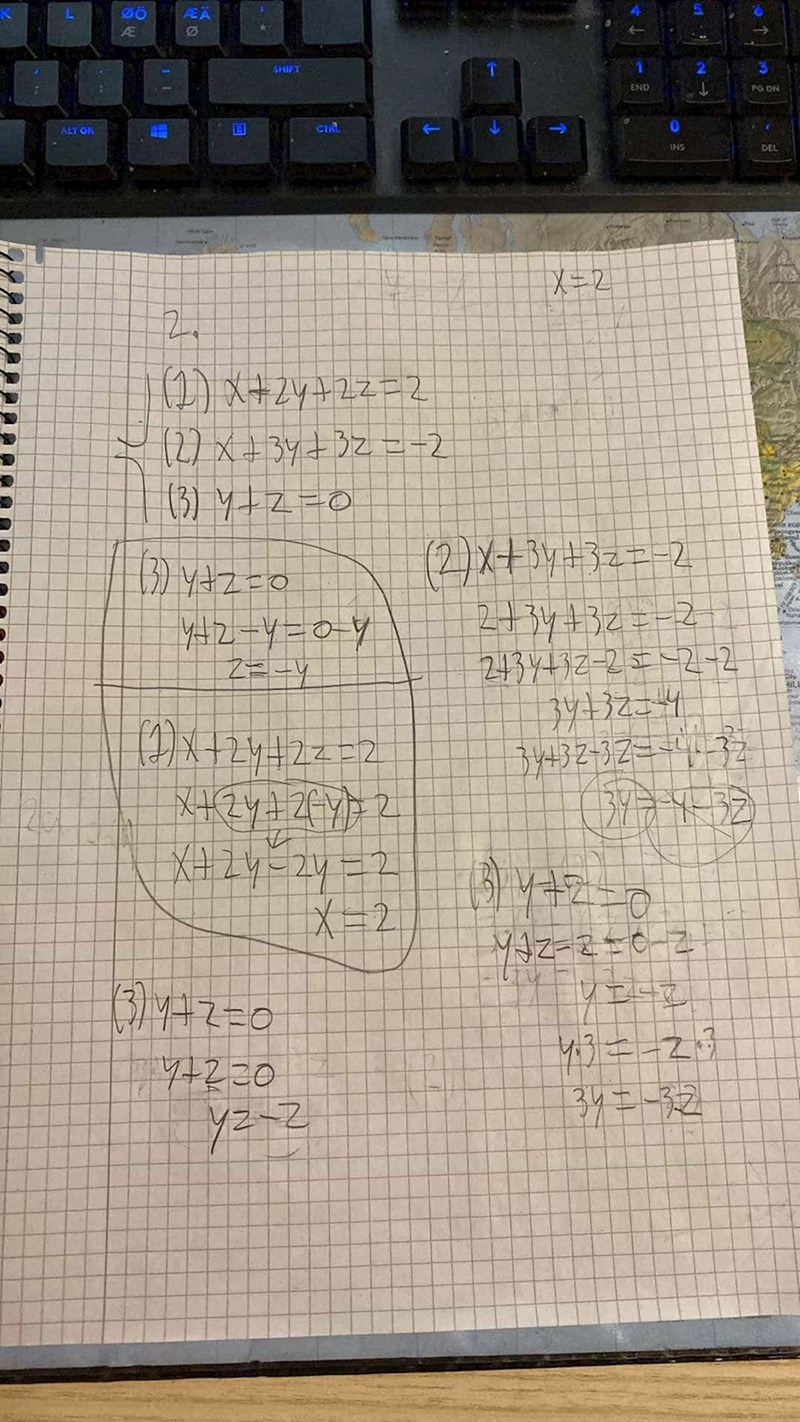 K L ØÖ ÆÄ ' 4 5 6
Æ Ø * ← →
, . - SHIFT ↑ 1 2 3
; : _ END ↓ PG DN
ALT GR CTRL ← ↓ → 0
INS DEL
x=2
2.
(1) x+2y+2z=2
(2) x+3y+3z=-2
(3) y+z=0
(3) y+z=0
y+z-y=0-y
z=-y
(1) x+2y+2z=2
x+2y+2(-y)=2
x+2y-2y=2
x=2
(3) y+z=0
y+z=0
y=-z
(2) x+3y+3z=-2
2+3y+3z=-2
2+3y+3z-2=-2-2
3y+3z=-4
3y+3z-3z=-4-3z
3y=-4-3z
(3) y+z=0
y+z-z=0-z
y=-z
y·3=-z·3
3y=-3z